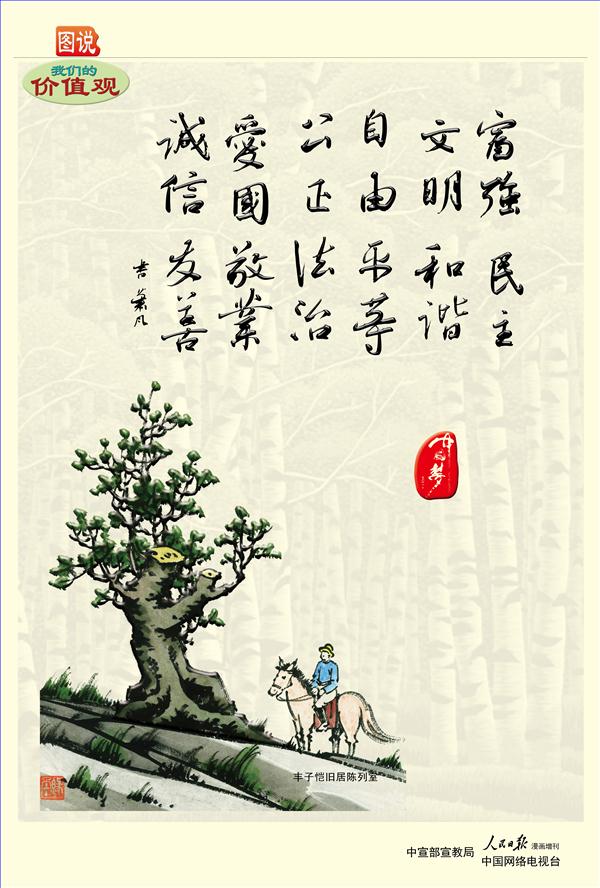 图说
我们的
价值观
富强 民主
文明 和谐
自由 平等
公正 法治
愛國 敬業
诚信 友善
中国梦
丰子恺旧居陈列室
中宣部宣教局
人民日报 漫画增刊
中国网络电视台